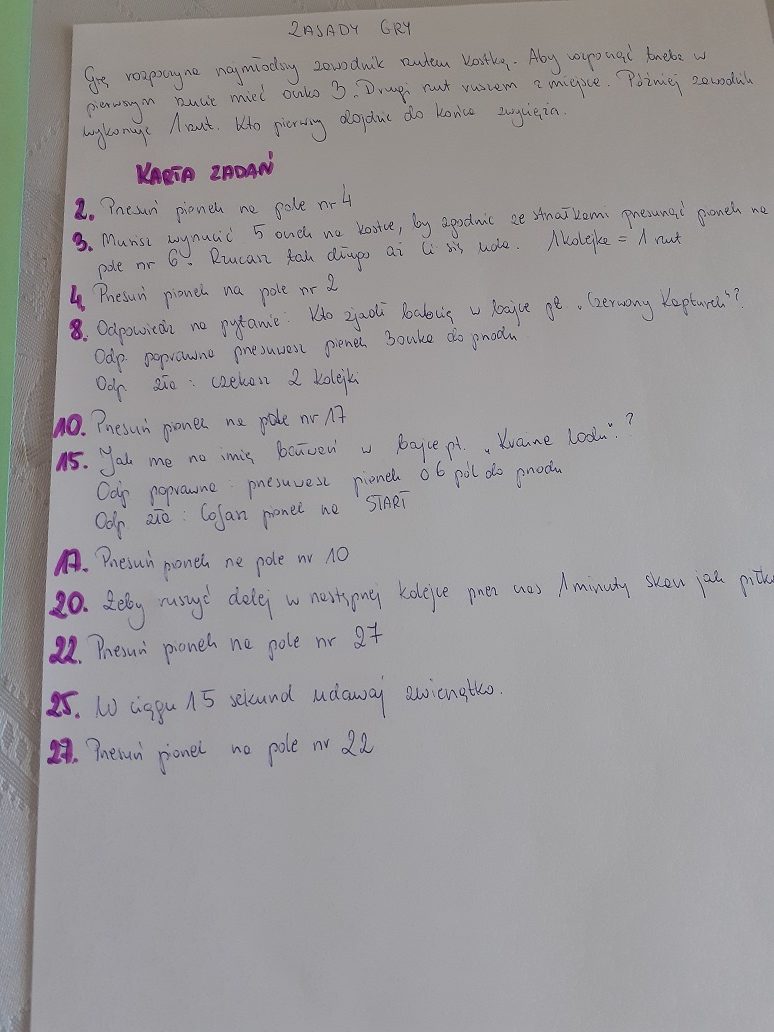 ZASADY GRY
Grę rozpoczyna najmłodszy zawodnik rzutem kostką. Aby rozpocząć trzeba w
pierwszym rzucie mieć oczko 3. Drugi rzut ruszam z miejsca. Później zawodnik
wykonuje 1 rzut. Kto pierwszy dojdzie do końca zwycięża.
KARTA ZADAŃ
2. Przesuń pionek na pole nr 4
3. Musisz wyrzucić 5 oczek na kostce, by zgodnie ze strzałkami przesunąć pionek na
pole nr 6. Rzucasz tak długo aż Ci się uda. 1 kolejka = 1 rzut
4. Przesuń pionek na pole nr 2
8. Odpowiedz na pytanie: Kto zjadł babcię w bajce pt. „Czerwony Kapturek"?
Odp. poprawna przesuwasz pionek 3 oczka do przodu
Odp. zła: czekasz 2 kolejki
10. Przesuń pionek na pole nr 17
15. Jak ma na imię bałwan w bajce pt. „Kraina lodu".?
Odp. poprawna: przesuwasz pionek o 6 pól do przodu
Odp. zła: Cofasz pionek na START
17. Przesuń pionek na pole nr 10
20. Żeby ruszyć dalej w następnej kolejce przez czas 1 minuty skacz jak piłka
22. Przesuń pionek na pole nr 27
25. W ciągu 15 sekund udawaj zwierzątko.
27. Przesuń pionek na pole nr 22